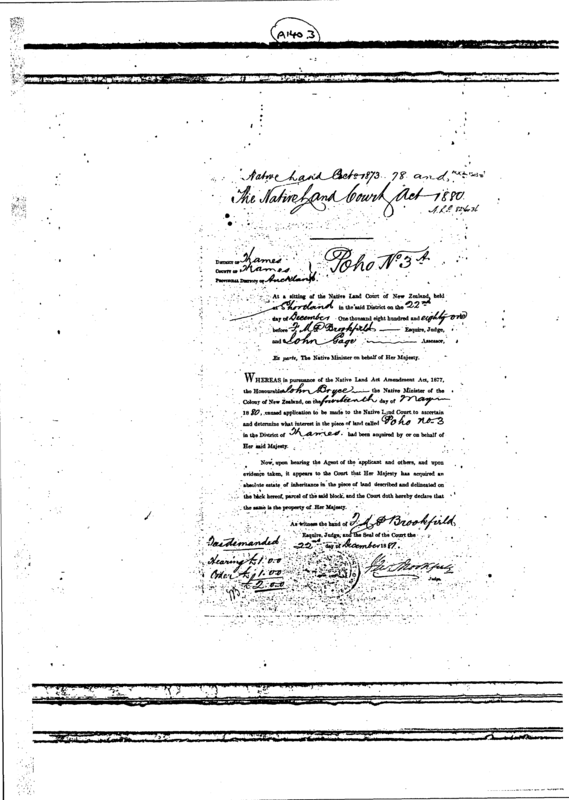 A140.3
Native Land Act 1873. 78 and
The Native Land Court Act 1880
Poho No 3A
DISTRICT OF Thames
COUNTY OF Thames
PROVINCIAL DISTRICT OF Auckland.
At a sitting of the Native Land Court of New Zealand, held
at Shortland in the said District on the 22nd
day of December One thousand eight hundred and eighty one
before Brookfield Esquire, Judge,
and John Assessor,
Ex parte, The Native Minister on behalf of Her Majesty.
WHEREAS in pursuance of the Native Land Act Amendment Act, 1877,
the Honourable John Bryce the Native Minister of the
Colony of New Zealand, on the fourteenth day of May
1880, caused application to be made to the Native Land Court to ascertain
and determine what interest in the piece of land called Poho No 3
in the District of Thames had been acquired by or on behalf of
Her said Majesty.
Now, upon hearing the Agent of the applicant and others, and upon
evidence taken, it appears to the Court that Her Majesty has acquired an
absolute estate of inheritance in the piece of land described and delineated on
the back hereof, parcel of the said block, and the Court doth hereby declare that
the same is the property of Her Majesty.
As witness the hand of Brookfield
Esquire, Judge, and the Seal of the Court the
22nd day of December 1881.
Fees demanded
Hearing £1.0.0
Order £1.0.0
£2.0.0
Judge.